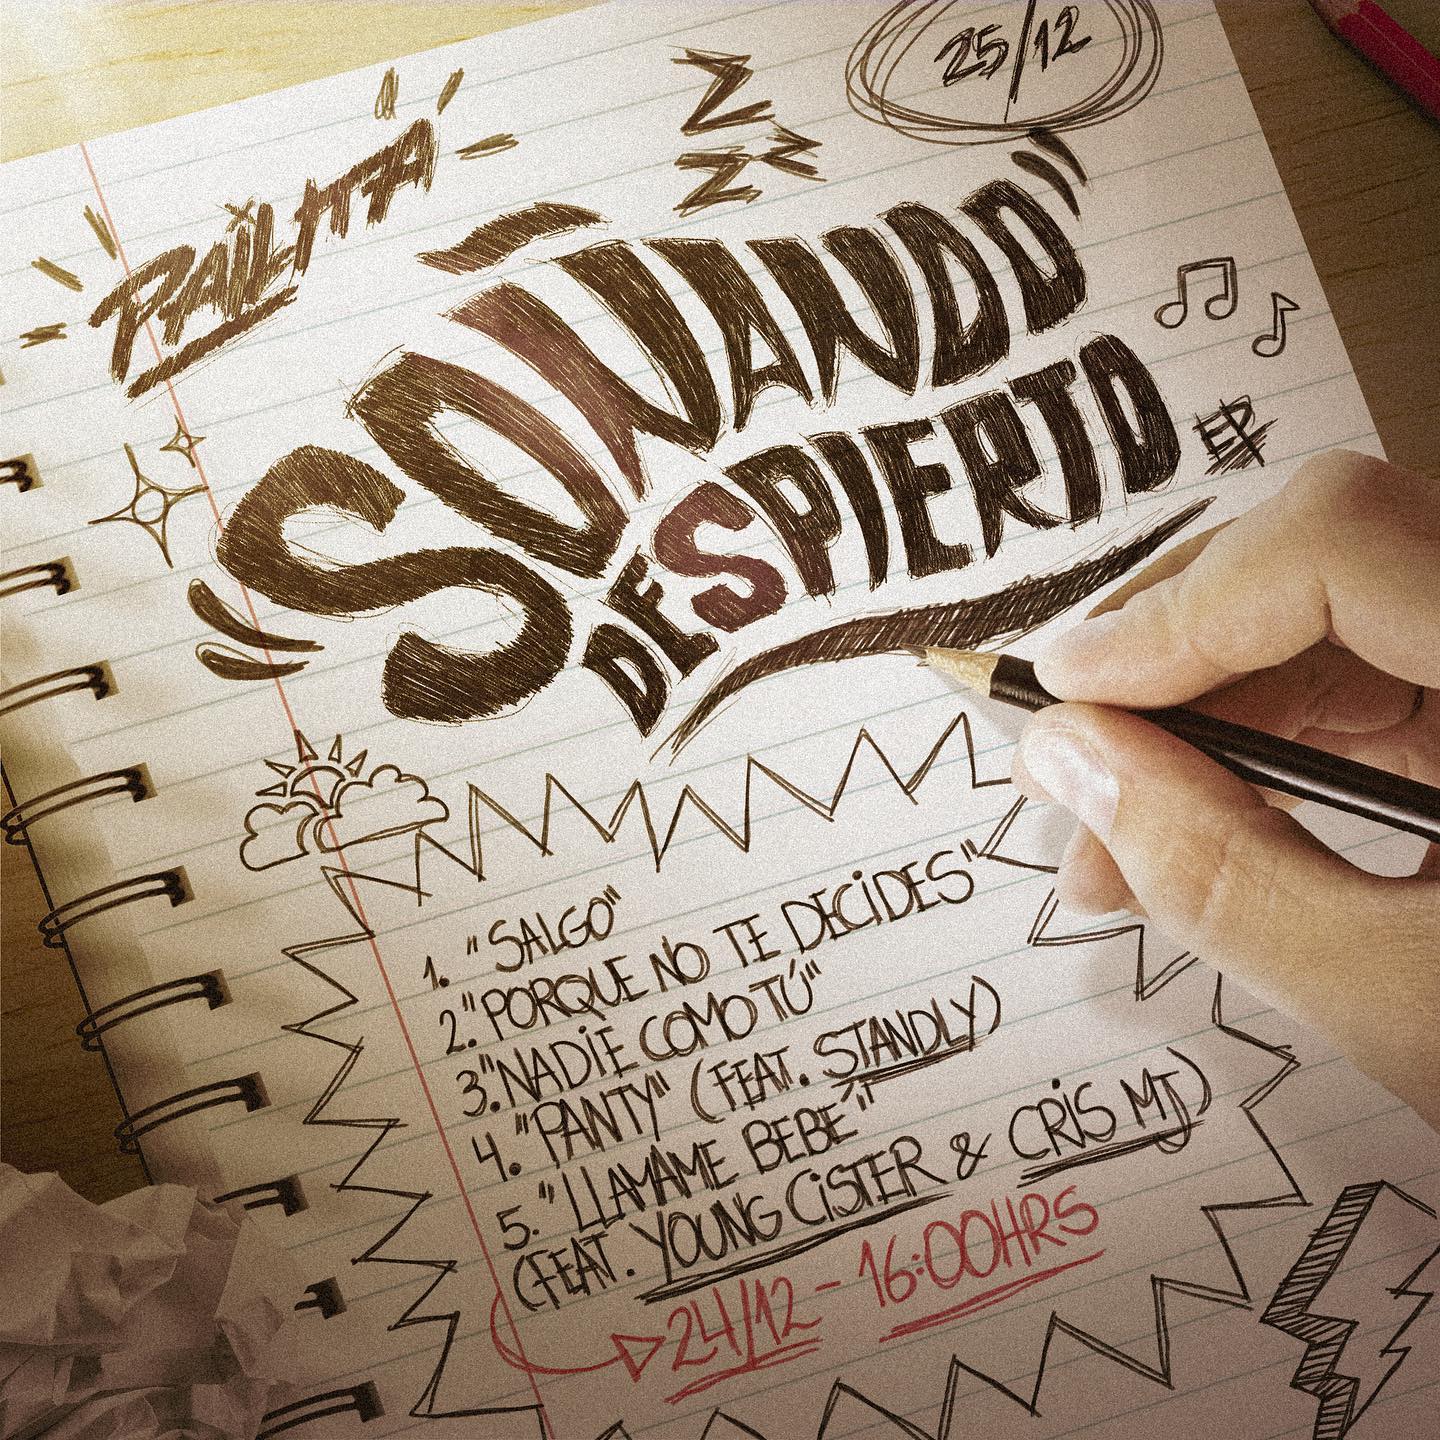 25/12
PAILITA
Z
Z Z
SOÑANDO
DESPIERTO
EP
1. "SALGO"
2. "PORQUE NO TE DECIDES"
3. "NADIE COMO TÚ"
4. "PANTY" (FEAT. STANDLY)
5. "LLAMAME BEBE"
(FEAT. YOUNG CISTER & CRIS MJ)
24/12 - 16:00HRS